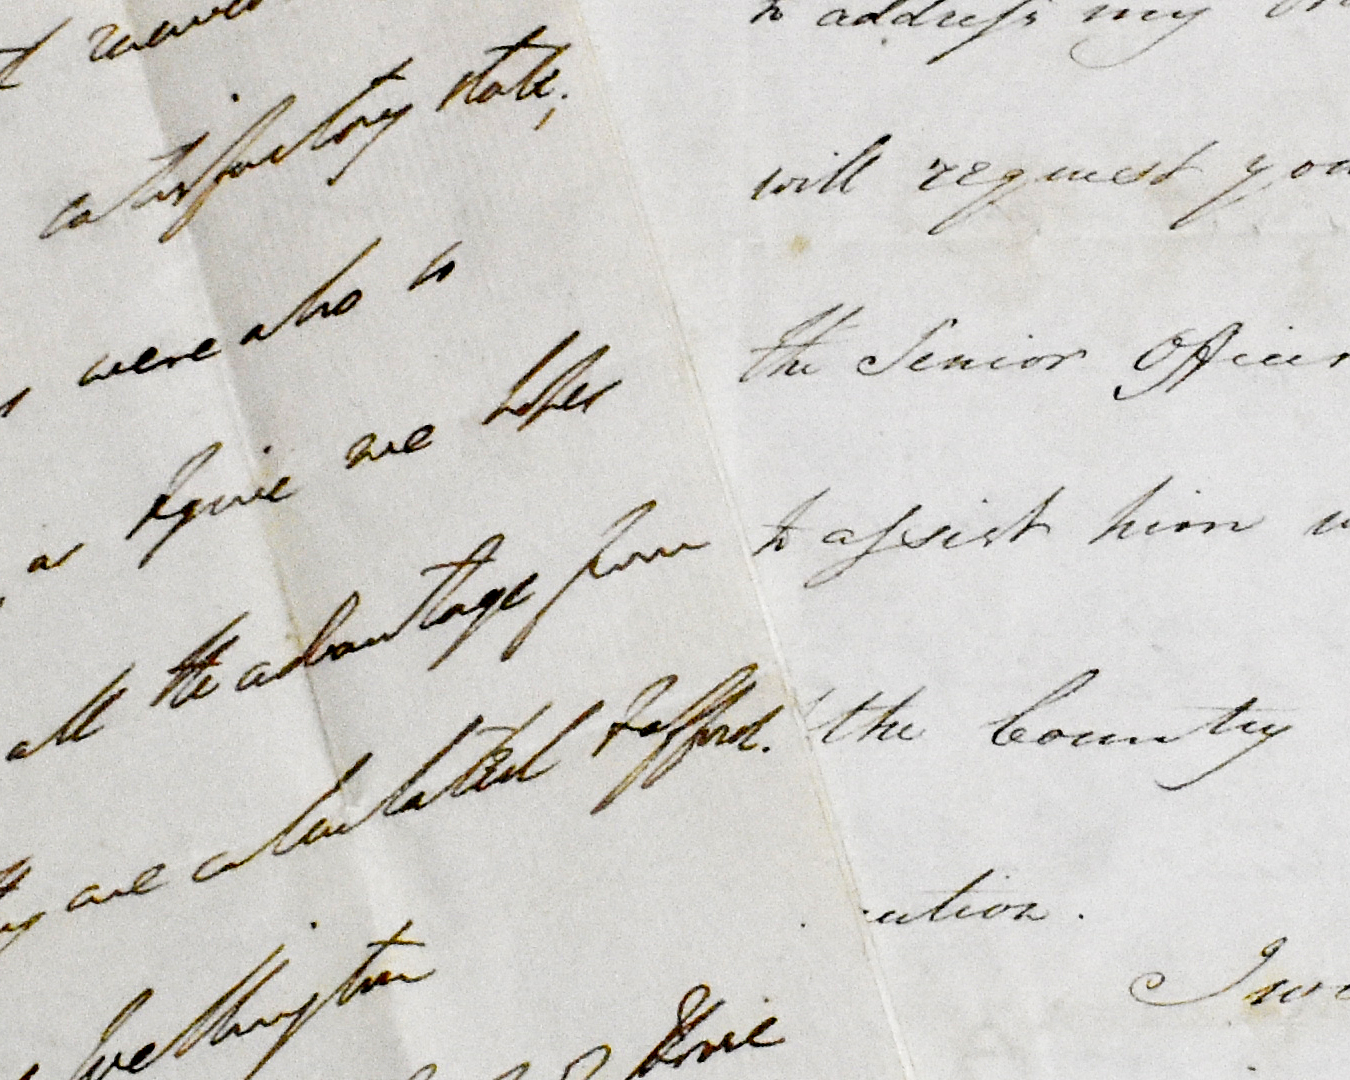 satisfactory state,
were also to
as we
all the advantage from
are calculated to afford.
Wellington
to address my
will request you
the Senior Officer
to assist him
the Country
cution.
I